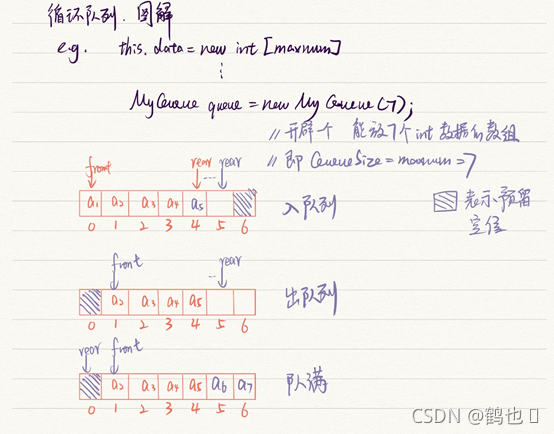 循环队列.图解
e.g. this.data = new int [maxnum]
⋮
MyQueue queue = new MyQueue(7);
//开辟一个 能放7个int数据的数组
//即 QueueSize = maxnum = 7
front rear ... rear
a1 a2 a3 a4 a5 入队列 表示预留
0 1 2 3 4 5 6 空位
front ... rear
a2 a3 a4 a5 出队列
0 1 2 3 4 5 6
rear front
a2 a3 a4 a5 a6 a7 队满
0 1 2 3 4 5 6
CSDN @鹤也